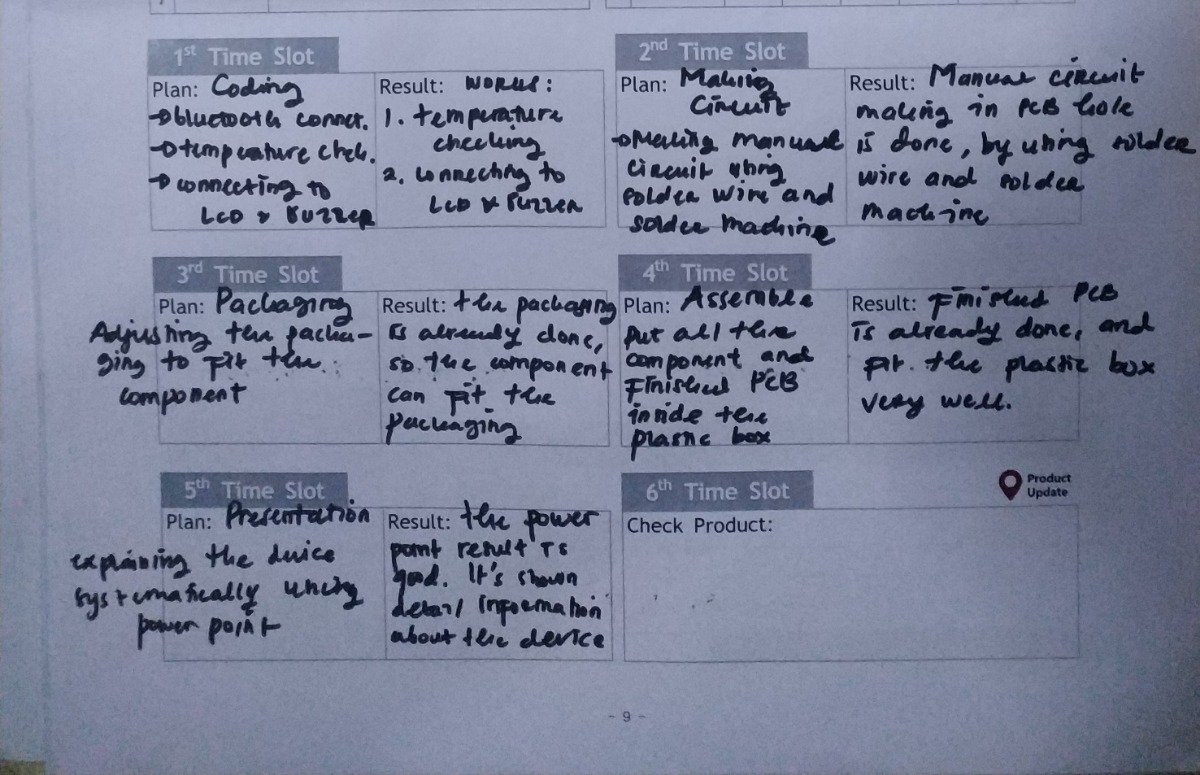 1st Time Slot
Plan: Coding
→bluetooth connct.
→temperature chck.
→connecting to
LCD & BUZZER
Result: WORKS:
1. temperature
checking
2. connecting to
LCD & BUZZER
2nd Time Slot
Plan: Making
Circuit
→Making manual
circuit using
solder wire and
solder machine
Result: Manual circuit
making in PCB hole
is done, by using solder
wire and solder
machine
3rd Time Slot
Plan: Packaging
Adjusting the packa-
ging to fit the
component
Result: the packaging
is already done,
so the component
can fit the
packaging
4th Time Slot
Plan: Assemble
put all the
component and
Finished PCB
inside the
plastic box
Result: Finished PCB
is already done, and
fit the plastic box
very well.
5th Time Slot
Plan: Presentation
explaining the device
systematically using
power point
Result: the power
point result is
good. It's shown
detail information
about the device
6th Time Slot
Product
Update
Check Product:
- 9 -